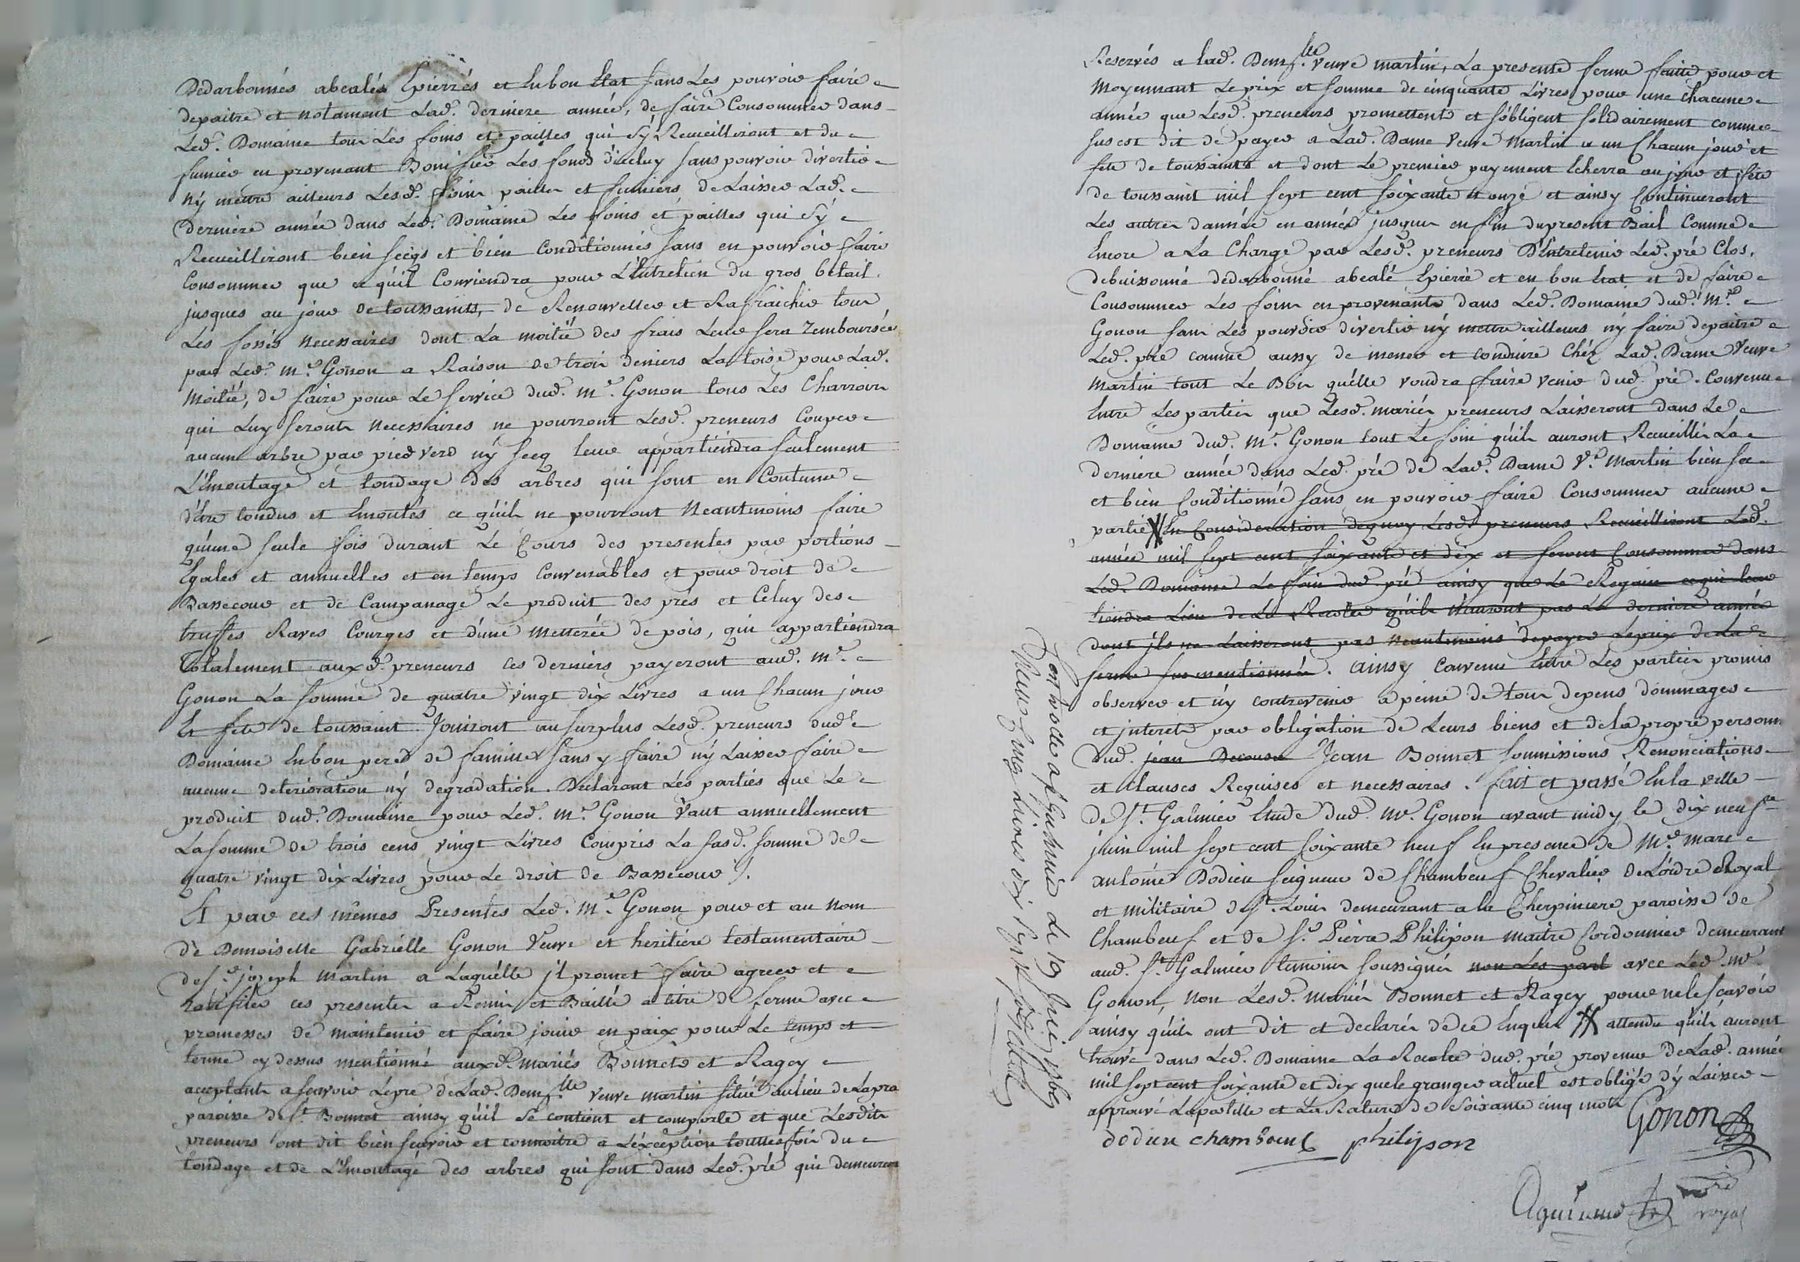 Dedarbonnés abealés Epierrés et Enbon Etat sans Les pouvoir faire
depaitre et notament Lad. derniere année, de faire Consommer dans
Led. Domaine tous Les foins et pailles qui s'y Recueilliront et du
fumier en provenant Bonifier Les fonds d'icluy sans pouvoir divertir
ny mettre ailleurs Lesd. foins pailles et fumiers de Laisser Lad.
derniere année dans Led. Domaine Les foins et pailles qui s'y
Recueilliront bien secqs et bien Conditionnés sans en pouvoir faire
Consommer que ce qu'il Conviendra pour L'Entretien du gros bétail
jusques au jour de toussaints, de Renouveller et Rafraichir tous
Les fossés necessaires dont La moitié des frais Leur sera remboursée
par Led. Me. Gonon a Raison de trois deniers La toise pour Lad.
Moitié, de faire pour Le service dud. Me. Gonon tous Les Charrois
qui Luy seronts necessaires ne pourront Lesd. preneurs Couper
aucun arbre par pied verd ny secq leur appartiendra seulement
L'émontage et tondage des arbres qui sont en Coutume
d'être tondus et Emontés ce qu'ils ne pourront Neantmoins faire
qu'une seule fois durant Le Cours des presentes par portions
Egales et annuelles et en temps Convenables et pour droit de
Bassecour et de Campanage Le produit des prés et Celuy des
truffes Raves Courges et d'une Metterée de pois, qui appartiendra
totalement auxd. preneurs ces derniers payeront aud. Me.
Gonon La somme de quatre vingt dix Livres a un Chacun jour
Et fete de toussaint Jouiront au surplus Lesd. preneurs dud.
Domaine Enbon pere de famille sans y faire ny Laisser faire
aucune deterioration ny degradation. Déclarant Les parties que Le
produit dud. Domaine pour Led. Me. Gonon Vaut annuellement
La somme de trois cens vingt Livres Compris La susd. somme de
quatre vingt dix Livres pour Le droit de Bassecour.
Et par ces mêmes Presentes Led. Me. Gonon pour et au nom
de Demoiselle Gabrielle Gonon Veuve et heritiere testamentaire
de Sr. joseph Martin a Laquelle il promet faire agreer et
ratifier ces presentes a Remis et Baillé a titre de ferme avec
promesses de maintenir et faire jouir en paix pour Le temps et
terme cy dessus mentionné auxd. mariés Bonnet et Ragey
acceptants a sçavoir Le pré de Lad. Demslle veuve martin situé au lieu de Lapra
paroisse de St. Bonnet ainsy qu'il se contient et comporte et que Lesdits
preneurs ont dit bien sçavoir et connoitre a L'éxception touttesfois du
tondage et de L'Emontage des arbres qui sont dans Led. pré qui demeurent
Reservés a Lad. Demslle veuve martin, La presente ferme faitte pour et
Moyennant Le prix et somme de cinquante Livres pour une chacune
année que Lesd. preneurs promettent et s'obligent solidairement comme
sus est dit de payer a Lad. Dame Veuve Martin a un Chacun jour et
fete de toussaints et dont Le premier payement Echerra au jour et fête
de toussaint mil sept cent soixante et onze et ainsy Continueront
Les autres d'année en année jusques en fin du present Bail Comme
Encore a La Charge par Lesd. preneurs D'Entretenir Led. pré Clos,
debuissonné dedarbonné abealé Epierré et en bon Etat et de faire
Consommer Les foins en provenants dans Led. Domaine dud. Me.
Gonon sans Les pouvoir divertir ny mettre ailleurs ny faire depaitre
Led. pré comme aussy de mener et conduire Chéz Lad. Dame Veuve
Martin tout Le Bois qu'elle voudra faire venir dud. pré. Convenu
Entre Les parties que Lesd. mariés preneurs Laisseront dans Le
Domaine dud. Me. Gonon tout Le foin qu'ils auront Recueillis La
derniere année dans Led. pré de Lad. Dame Ve. Martin bien sec
et bien Conditionné sans en pouvoir faire Consommer aucune
partie En Consideration dequoy Lesd. preneurs Recueilliront Lad.
année mil sept cent soixante et dix et feront Consommer dans
Led. Domaine Le foin dud. pré ainsy que Le Regain ce qui leur
tiendra Lieu de La Recolte qu'ils n'auront pas La derniere année
dont ils ne Laisseront pas neantmoins de payer Le prix de La
ferme sus mentionnée. ainsy Convenu Entre Les parties promis
observer et ny contrevenir a peine de tous depens dommages
et interets par obligation de Leurs biens et de la propre personne
dud. jean Jean Bonnet soumissions Renonciations
et Clauses Requises et necessaires. fait et passé En la ville
de St. Galmier Etude dud. Me Gonon avant midy le dix neuf
juin mil sept cent soixante neuf En presence de Mre. marc
antoine Dodieu seigneur de Chambeuf Chevalier de L'ordre Royal
et militaire de St. Louis demeurant a la Cherpiniere paroisse de
Chambeuf et de Sr. Pierre Philipon maitre Cordonnier demeurant
aud. St. Galmier temoins soussignés non Les part avec Led. Me
Gonon, non Lesd. mariés Bonnet et Ragey pour ne le sçavoir
ainsy qu'ils ont dit et declarés de ce Enquis attendu qu'ils auront
trouvé dans Led. Domaine La Recolte dud. pré provenue de Lad. année
mil sept cent soixante et dix que le granger actuel est obligé d'y Laisser
approuvé La postille et La Rature de soixante cinq mots
Gonon
dodieu chambeuf philipon
royal